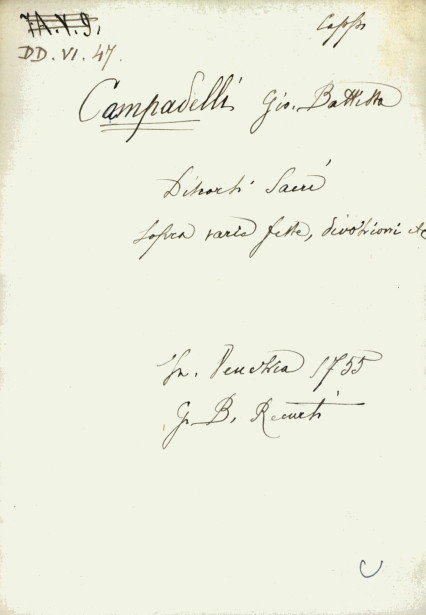 7A.V.9.
DD. VI. 47.
Campadelli Gio. Battista
Discorsi Sacri
sopra varie feste, divozioni etc
In Venezia 1755
G. B. Recurti
C